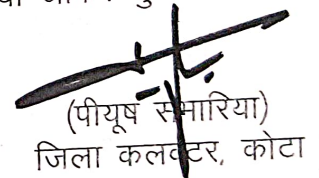 (पीयूष समारिया)
जिला कलक्टर, कोटा